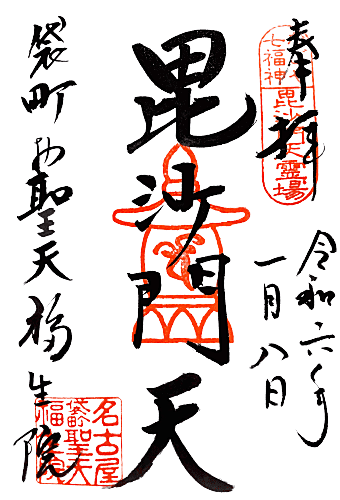 奉拝
七福神
毘沙門天霊場
令和六年
一月八日
毘沙門天
袋町お聖天福生院
名古屋
袋町聖天
福生院